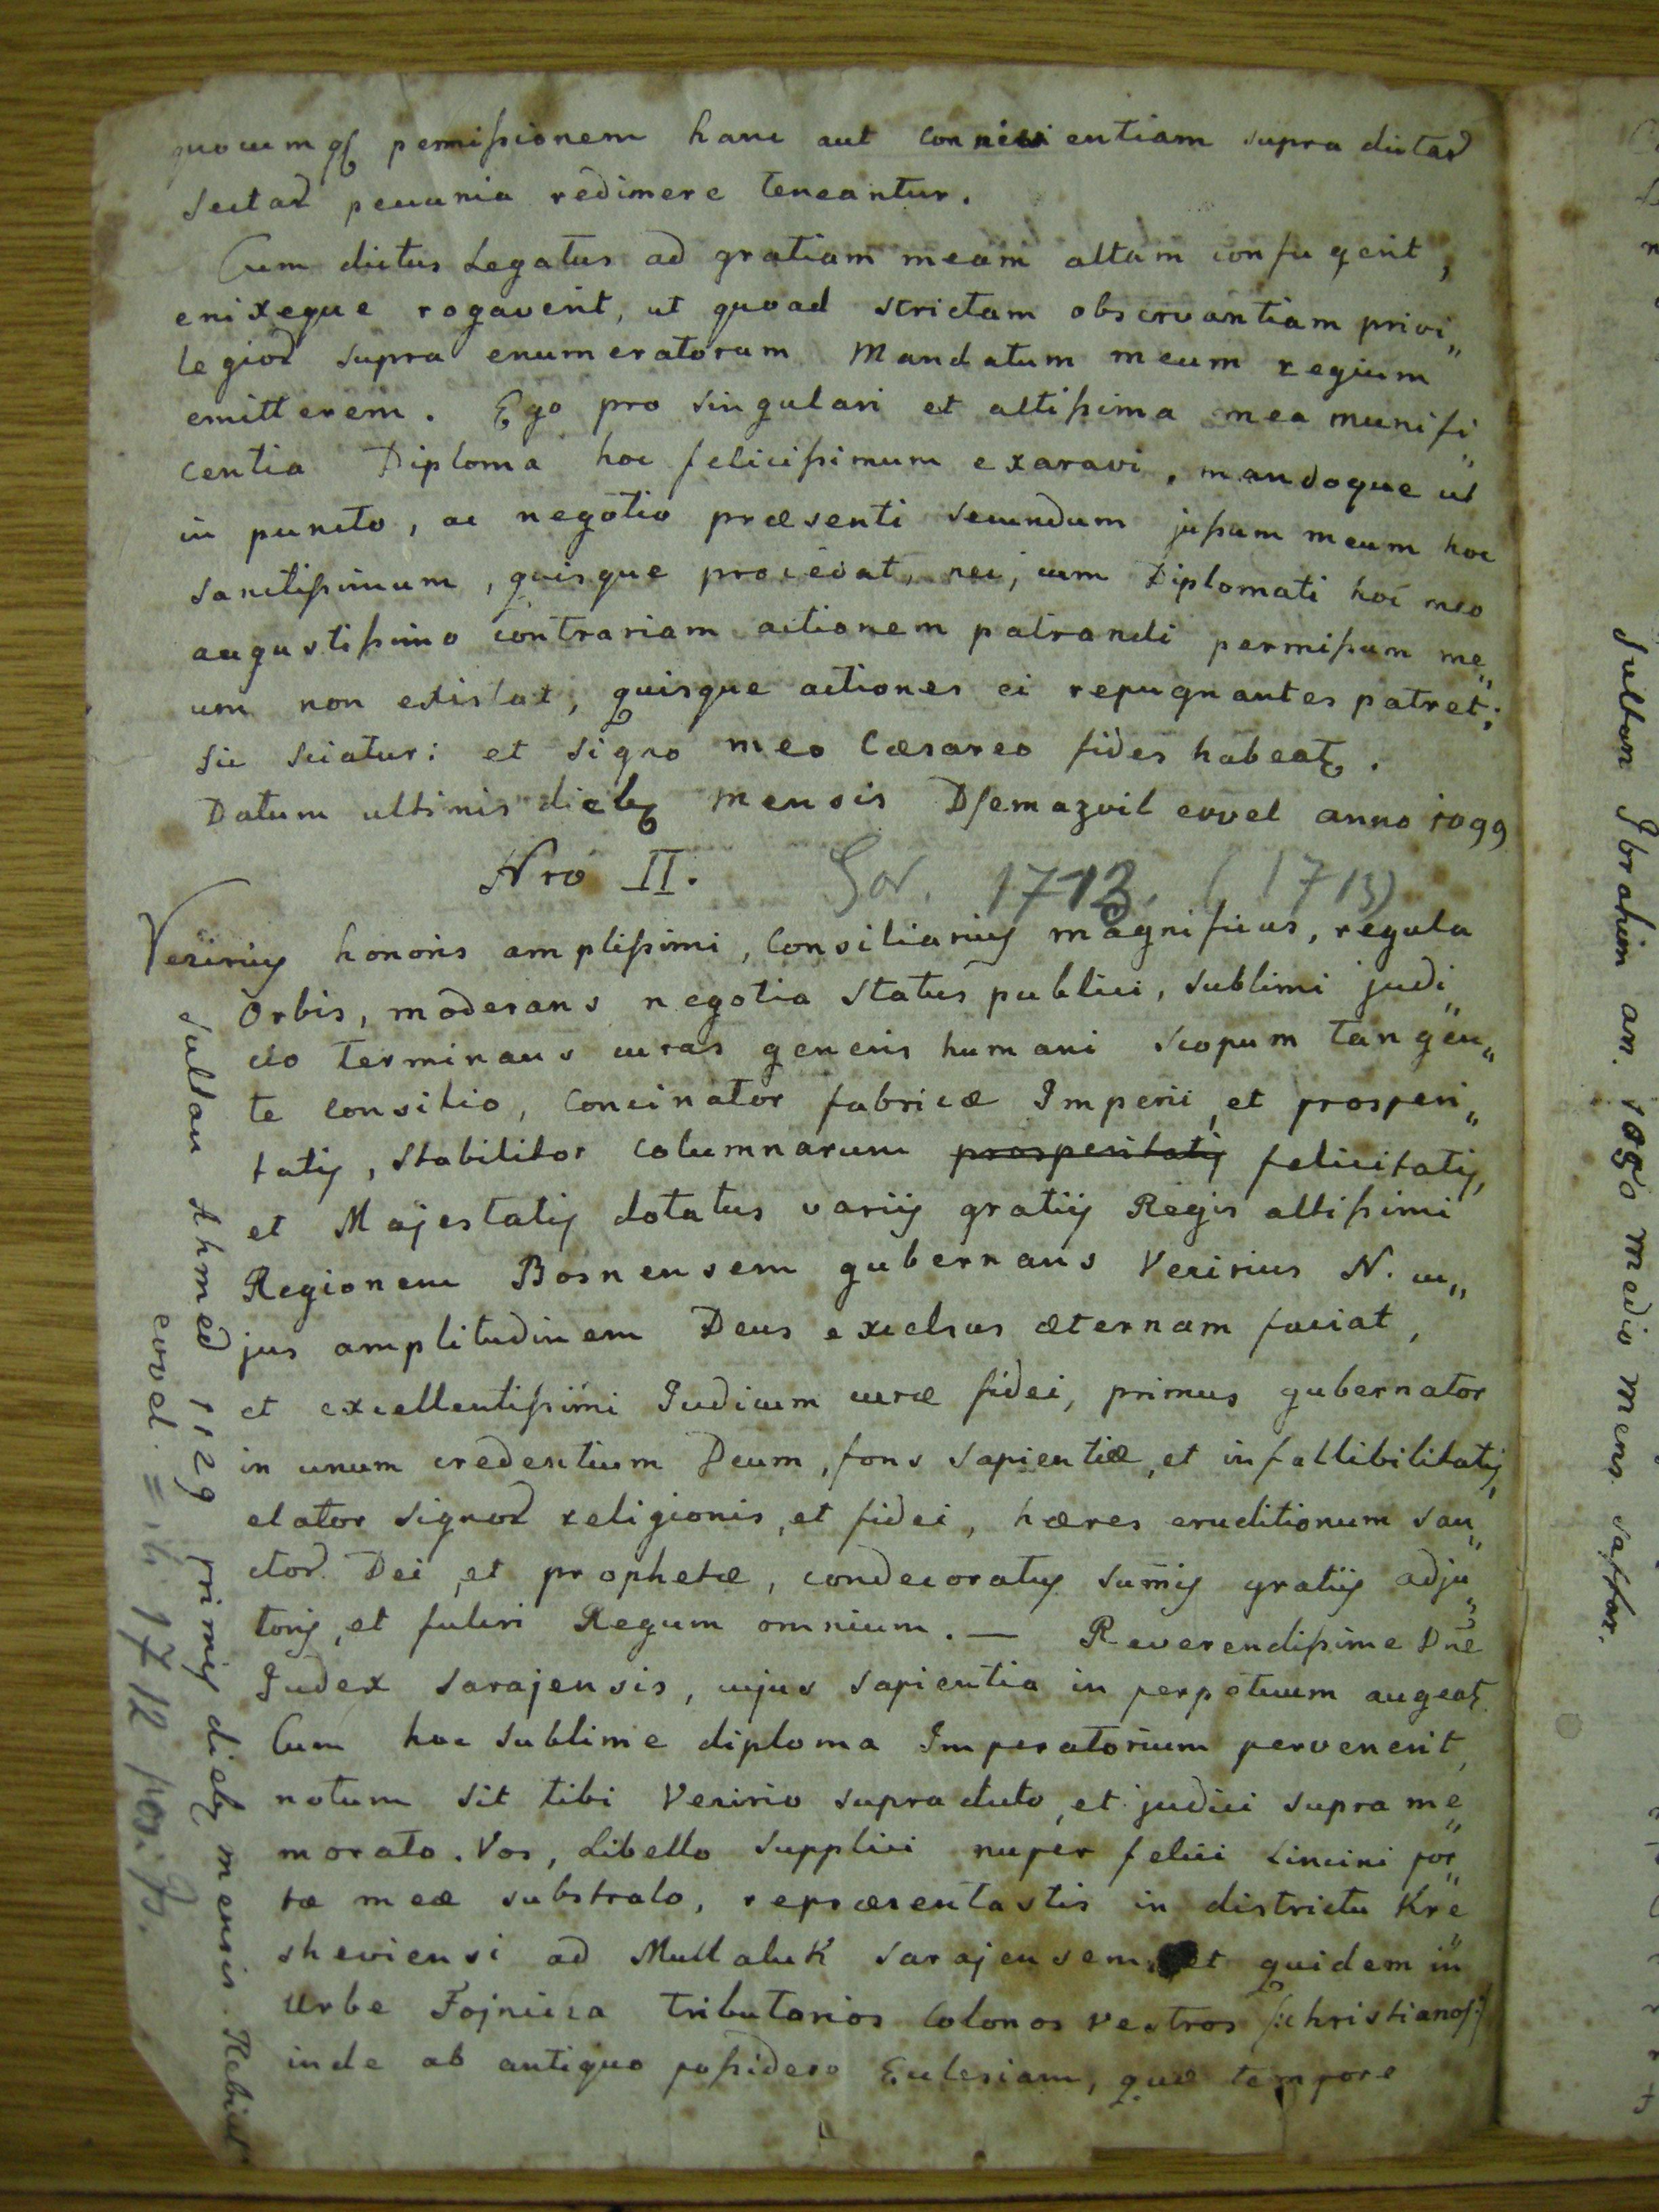 pemissionem hanc aut conniventiam supra dictas
sectas pecunia redimere teneantur.
Cum dictus Legatus ad gratiam meam altam confugerit,
enixeque rogaverit, ut quoad strictam observantiam privi„
legior supra enumeratorum Mandatum meum regium
emitterem. Ego pro singulari et altissima mea munifi„
centia Diploma hoc felicissimum exaravi, mandoque ut
in puncto, ac negotio præsenti secundum jussum meum hoc
sanctissimum, quisque procedat, nec, cum Diplomati hoc meo
augustissimo contrariam actionem patrandi permissum me„
um non existat, quisque actiones ei repugnantes patret;
sic sciatur: et signo meo Cæsareo fides habeatr.
Datum ultimis diebq mensis Dsemazvil evvel anno 1099
Nro II. Gov. 1713. (1713)
Vezirius honoris amplissimi, Consiliarius magnificus, regula
Orbis, moderans negotia Status publici, sublimi judi„
cio terminans curas generis humani scopum tangen„
te consilio, Concinator fabricæ Imperii, et prosperi„
tatis, stabilitor columnarum prosperitatis felicitatis,
et Majestatis dotatus variis gratiis Regis altissimi
Regionem Bosnensem gubernans Vezirius N. cu„
jus amplitudinem Deus excelsus æternam faciat,
et excellentissimi Judicum curæ fidei, primus gubernator
in unum credentium Deum, fons sapientiæ, et infallibilitatis,
elator signor religionis, et fidei, hæres eruditionum san„
ctor. Dei, et prophetæ, condecoratus sum̄is gratiis adju„
toris, et fulcri Regum omnium. — Reverendissime Dn̄e
Judex Sarajensis, cujus sapientia in perpetuum augeatr.
Cum hoc sublime diploma Imperatorium pervenerit,
notum sit tibi Vezirio supradicto, et judici supra me„
morato. Vos, Libello supplici nuper felici Limini por„
tæ meæ substrato, repræsentastis in districtu Kre„
sheviensi ad Mullaluk Sarajensem, et quidem in„
Urbe Fojnicza tributarios Colonos vestros (:christianos:)
inde ab antiquo possidere Ecclesiam, quæ tempore
Sultan Ahmed 1129 primis diebq mensis Rebiul
evvel. =
1712
Sultan Ibrahim an. 1050 medio mens. saffar.